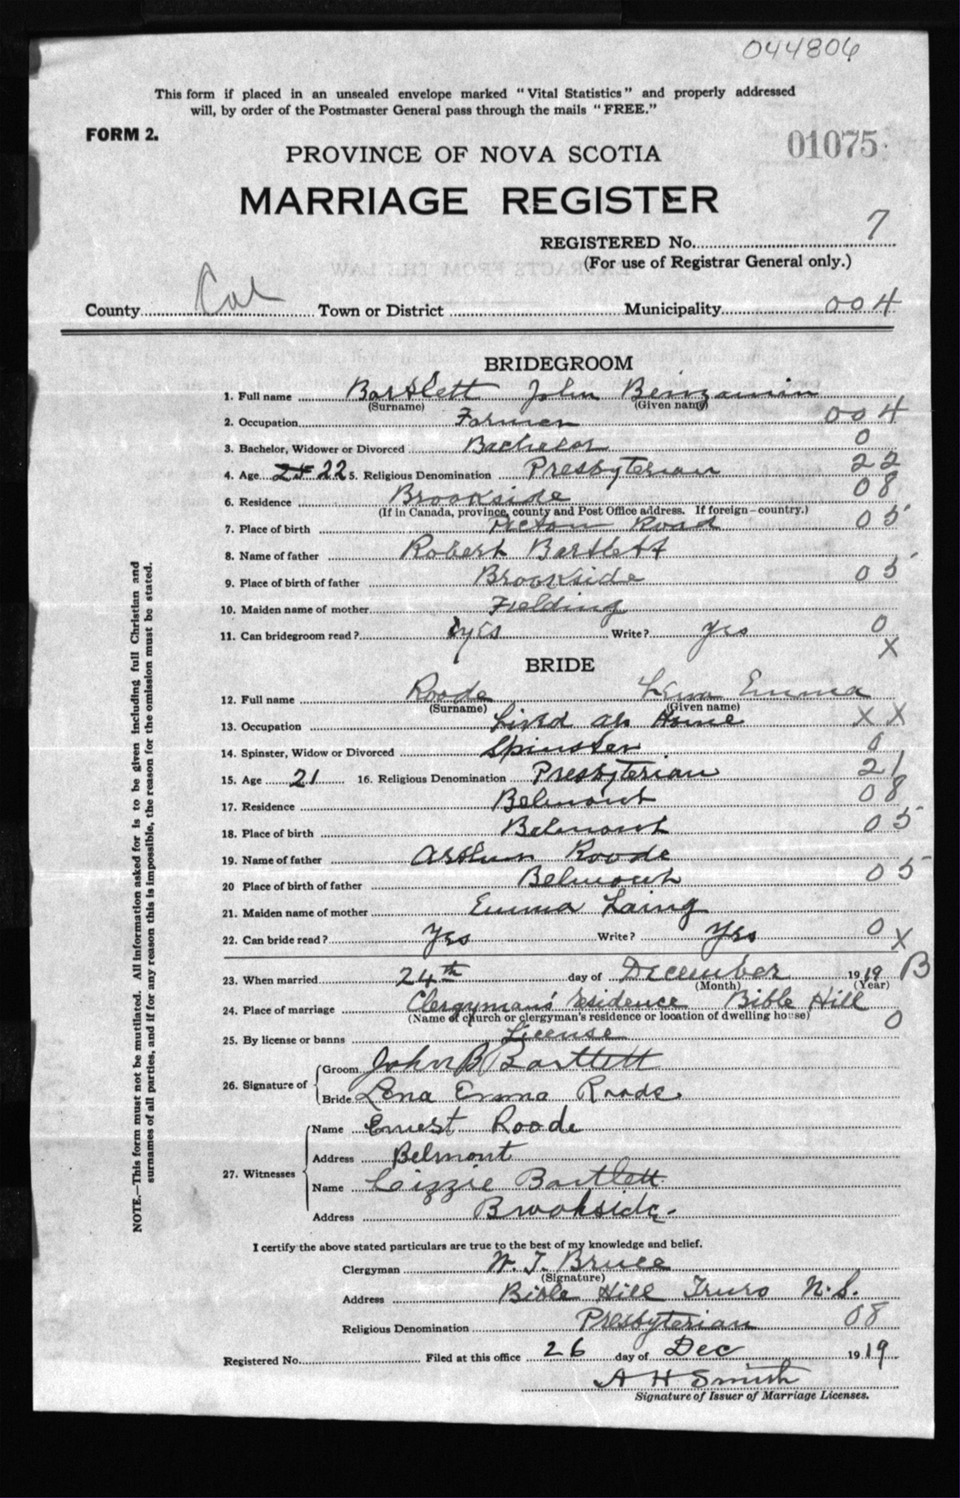 044806
This form if placed in an unsealed envelope marked "Vital Statistics" and properly addressed
will, by order of the Postmaster General pass through the mails "FREE."
FORM 2.
01075
PROVINCE OF NOVA SCOTIA
MARRIAGE REGISTER
REGISTERED No. 7
(For use of Registrar General only.)
County Col Town or District Municipality 004
BRIDEGROOM
1. Full name Bartlett John Benjamin
(Surname) (Given name)
2. Occupation Farmer 004
3. Bachelor, Widower or Divorced Bachelor 0
4. Age 22 5. Religious Denomination Presbyterian 22
6. Residence Brookside 08
(If in Canada, province, county and Post Office address. If foreign—country.)
7. Place of birth Pictou Road 05
8. Name of father Robert Bartlett
9. Place of birth of father Brookside 05
10. Maiden name of mother Fielding
11. Can bridegroom read? yes Write? yes 0
X
BRIDE
12. Full name Roode Lena Emma
(Surname) (Given name)
13. Occupation Lived at Home X X
14. Spinster, Widow or Divorced Spinster 0
15. Age 21 16. Religious Denomination Presbyterian 21
17. Residence Belmont 08
18. Place of birth Belmont 05
19. Name of father Arthur Roode
20 Place of birth of father Belmont 05
21. Maiden name of mother Emma Laing
22. Can bride read? Yes Write? Yes 0 X
23. When married 24th day of December 1919 B
(Month) (Year)
24. Place of marriage Clergyman's residence Bible Hill
(Name of church or clergyman's residence or location of dwelling house) 0
25. By license or banns License
26. Signature of Groom John B Bartlett
Bride Lena Emma Roode
27. Witnesses Name Ernest Roode
Address Belmont
Name Lizzie Bartlett
Address Brookside.
I certify the above stated particulars are true to the best of my knowledge and belief.
Clergyman W. T. Bruce
(Signature)
Address Bible Hill Truro N.S.
Religious Denomination Presbyterian 08
Registered No. Filed at this office 26 day of Dec 1919
A H Smith
Signature of Issuer of Marriage Licenses.
NOTE.—This form must not be mutilated. All information asked for is to be given including full Christian and
surnames of all parties, and if for any reason this is impossible, the reason for the omission must be stated.